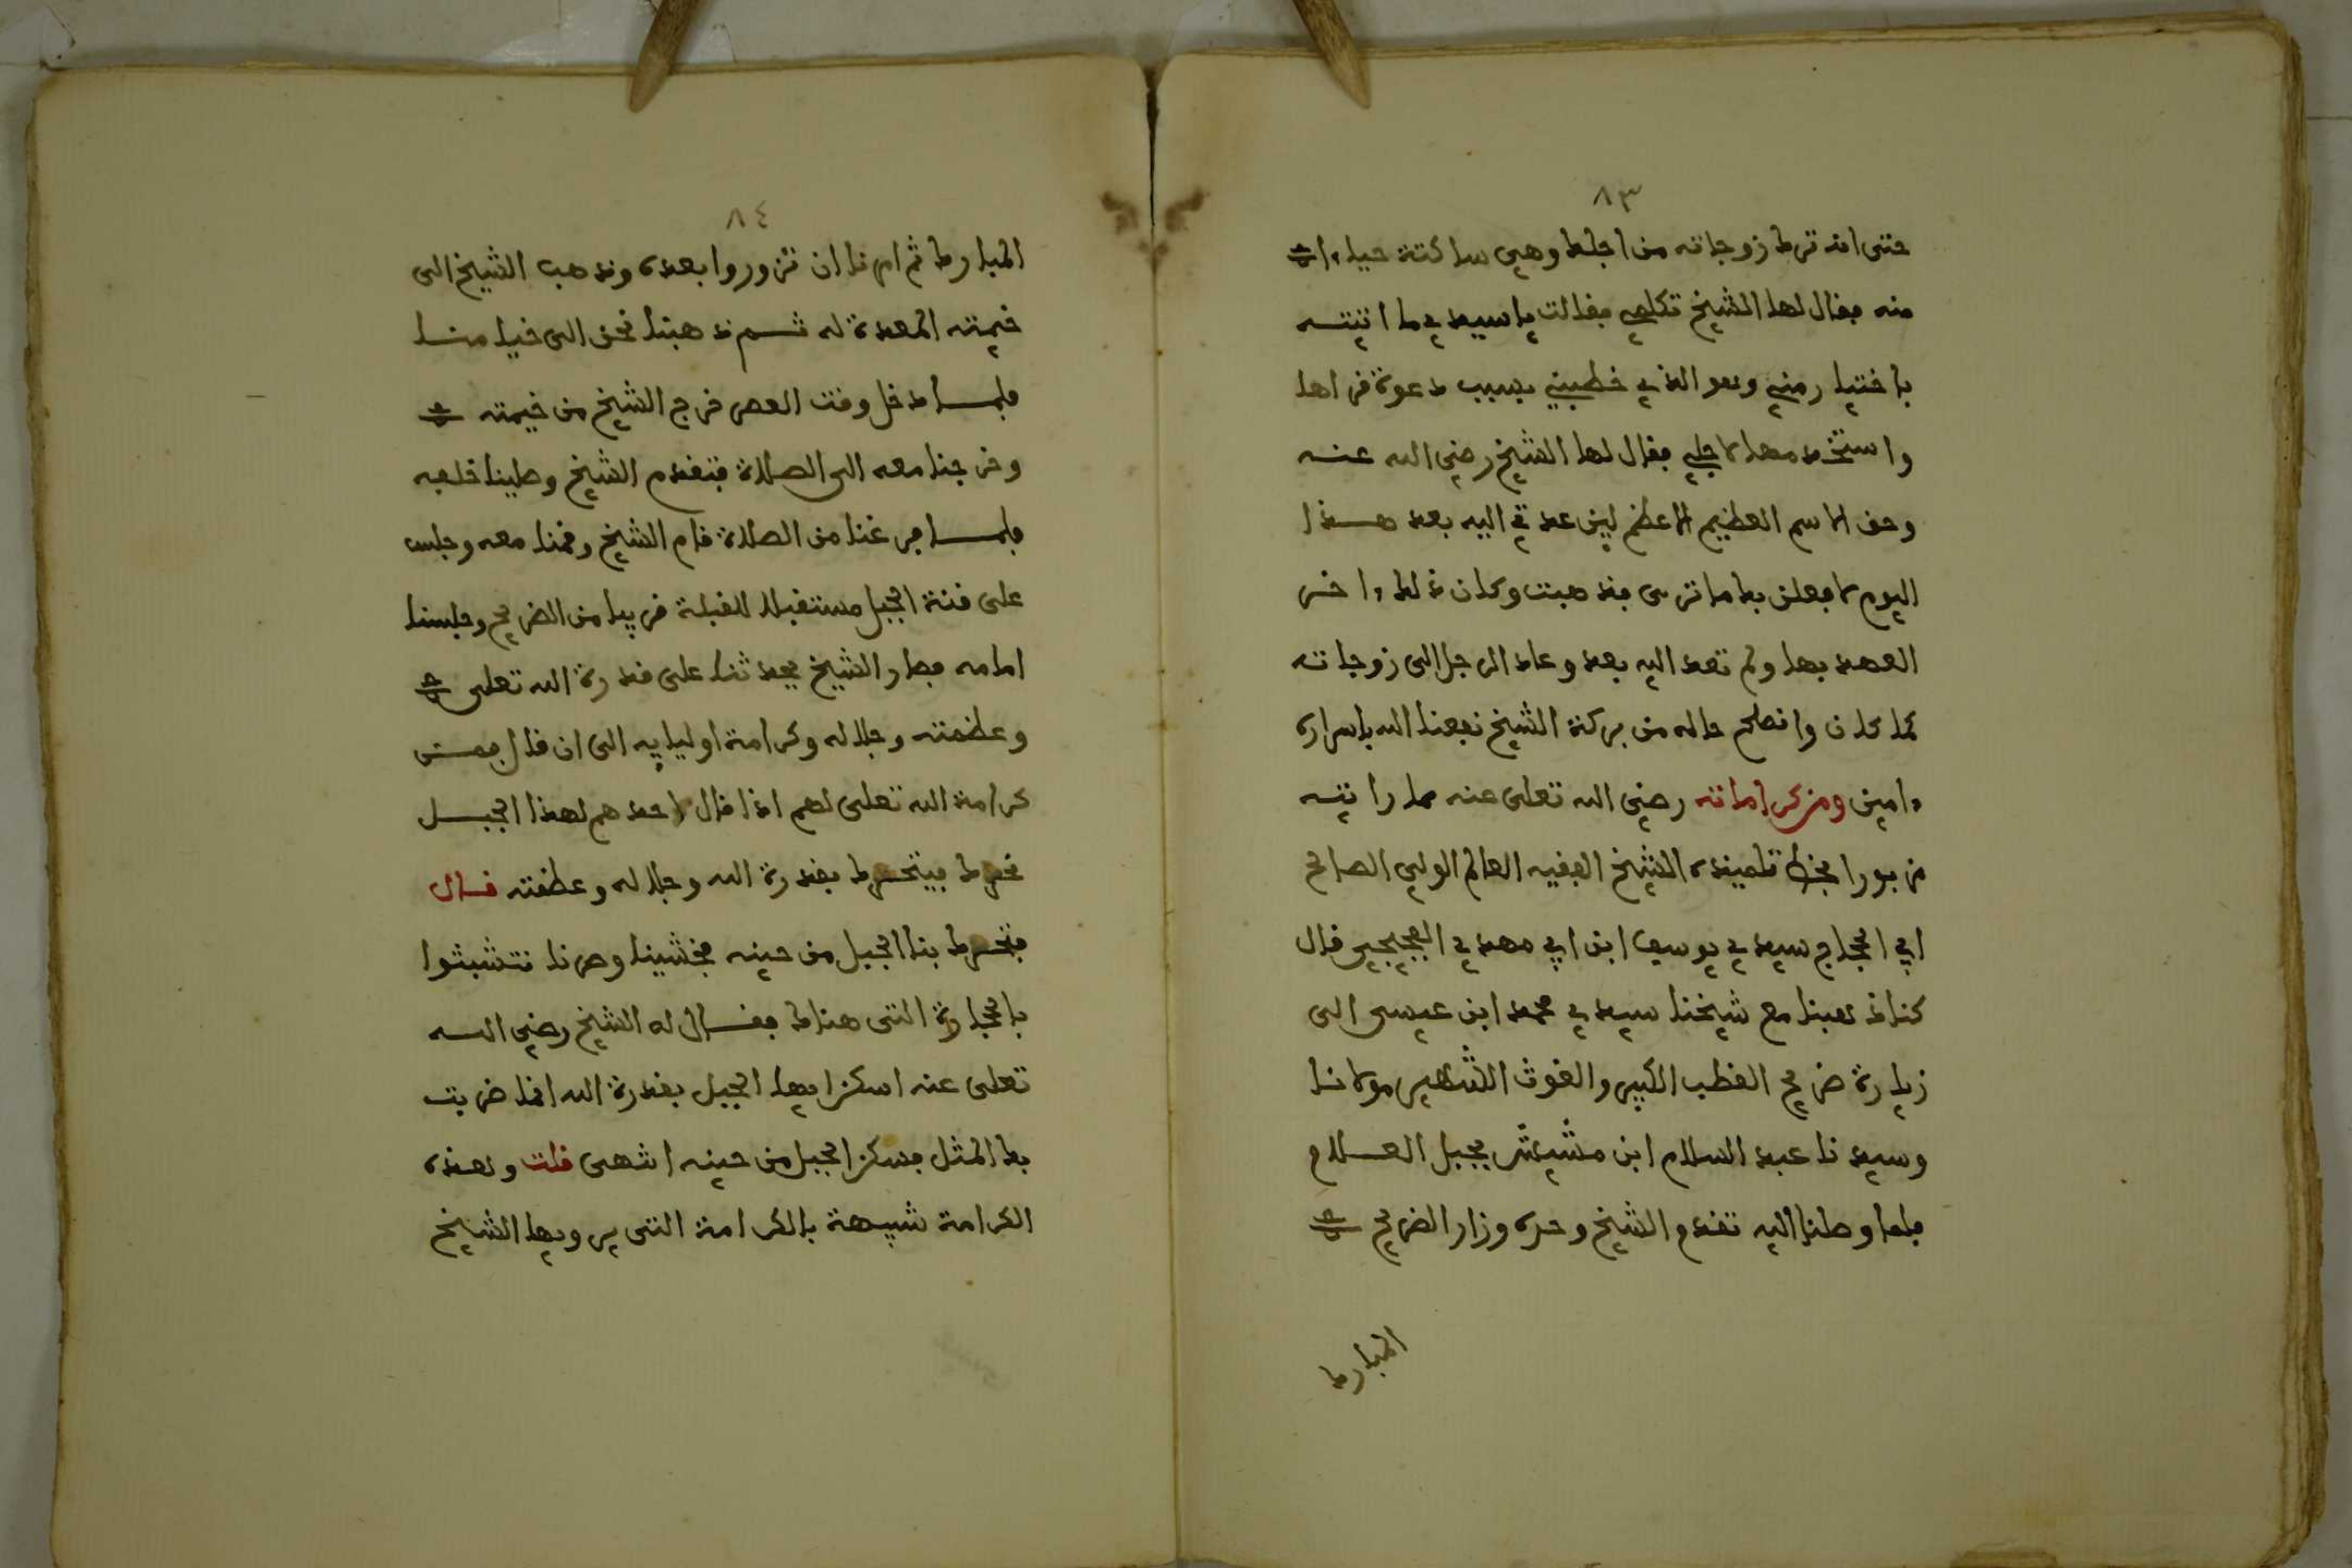 ٨٣
حتى انه ترك زوجاته من اجلها وهي ساكتة حياء
منه فقال لها الشيخ تكلمي فقالت يا سيدي ما اتيته
باختيار مني وهو الذي خطبني بسبب دعوة قراها
واستخدمها لاجلي فقال لها الشيخ رضي الله عنه
وحق الاسم العظيم الاعظم لين عدتي اليه بعد هذا
اليوم لافعلن بك ما ترى فذهبت وكان ذلك ءاخر
العهد بها ولم تعد اليه بعد وعاد الرجل الى زوجاته
كما كان وانصلح حاله من بركة الشيخ نفعنا الله باسراره
ءامين ومن كراماته رضي الله تعلى عنه مما رايته
مزبورا بخط تلميذه الشيخ الفقيه العالم الولي الصالح
ابي الحجاج سيدي يوسف ابن ابي مهدي الفجيجي قال
كنا ذهبنا مع شيخنا سيدي محمد ابن عيسى الى
زيارة ضريح القطب الكبير والغوث الشهير مولانا
وسيدنا عبد السلام ابن مشيش بجبل العلام
فلما وصلنا اليه تقدم الشيخ وحده وزار الضريح
المبارك
٨٤
المبارك ثم امرنا ان نزوروا بعده وذهب الشيخ الى
خيمته المعدة له ثم ذهبنا نحن الى خيامنا
فلما دخل وقت العصر خرج الشيخ من خيمته
وخرجنا معه الى الصلاة فتقدم الشيخ وصلينا خلفه
فلما فرغنا من الصلاة قام الشيخ وقمنا معه وجلس
على قنة الجبل مستقبلا للقبلة قريبا من الضريح وجلسنا
امامه فصار الشيخ يحدثنا على قدرة الله تعلى
وعظمته وجلاله وكرامة اولياءه الى ان قال فمن
كرامة الله تعلى لهم اذا قال احدهم لهذا الجبل
تحرك فيتحرك بقدرة الله وجلاله وعظمته قال
فتحرك بنا الجبل من حينه فخشينا وصرنا نتشبثوا
بالحجارة التى هناك فقال له الشيخ رضي الله
تعلى عنه اسكن ايها الجبل بقدرة الله انما ضربت
بك المثل فسكن الجبل من حينه انتهى قلت وهذه
الكرامة شبيهة بالكرامة التى يرويها الشيخ